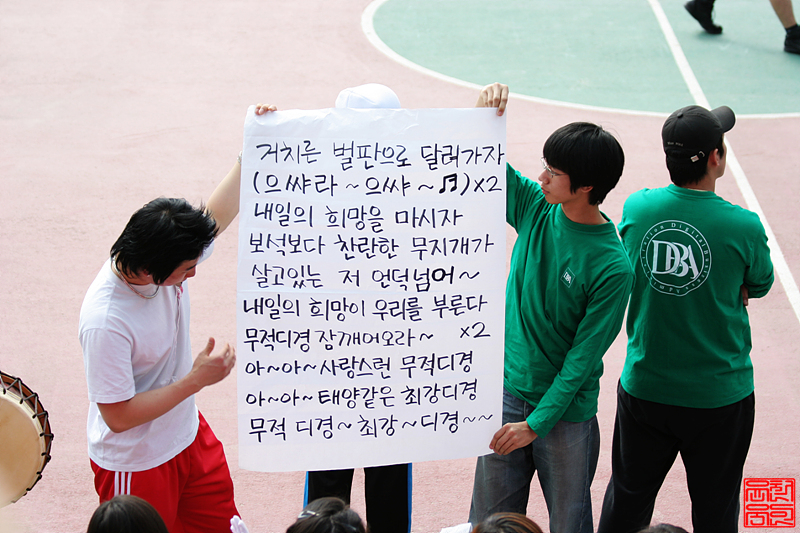 거치른 벌판으로 달려가자
(으쌰라~으쌰~♬)×2
내일의 희망을 마시자
보석보다 찬란한 무지개가
살고있는 저 언덕넘어~
내일의 희망이 우리를 부른다
무적디경 잠깨어오라~ ×2
아~아~사랑스런 무적디경
아~아~태양같은 최강디경
무적 디경~최강~디경~~
DBA
DBA